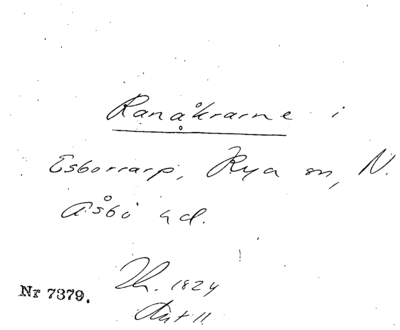 Ranåkrarne i
Esborrarp, Rya sn, N.
Åsbo hd.
Nr 7379.
Th. 1824
Akt 11